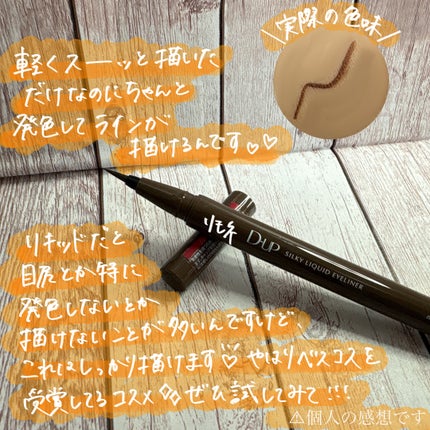 ＼実際の色味／
軽くスーッと描いた
だけなのにちゃんと
発色してラインが
描けるんです♡♡
リモ糸
D-UP SILKY LIQUID EYELINER
リキッドだと
目尻とか特に
発色しないとか
描けないことが多いんですけど、
これはしっかり描けます♡やはりベスコスを
受賞してるコスメ ぜひ試してみて!!!
⚠個人の感想です